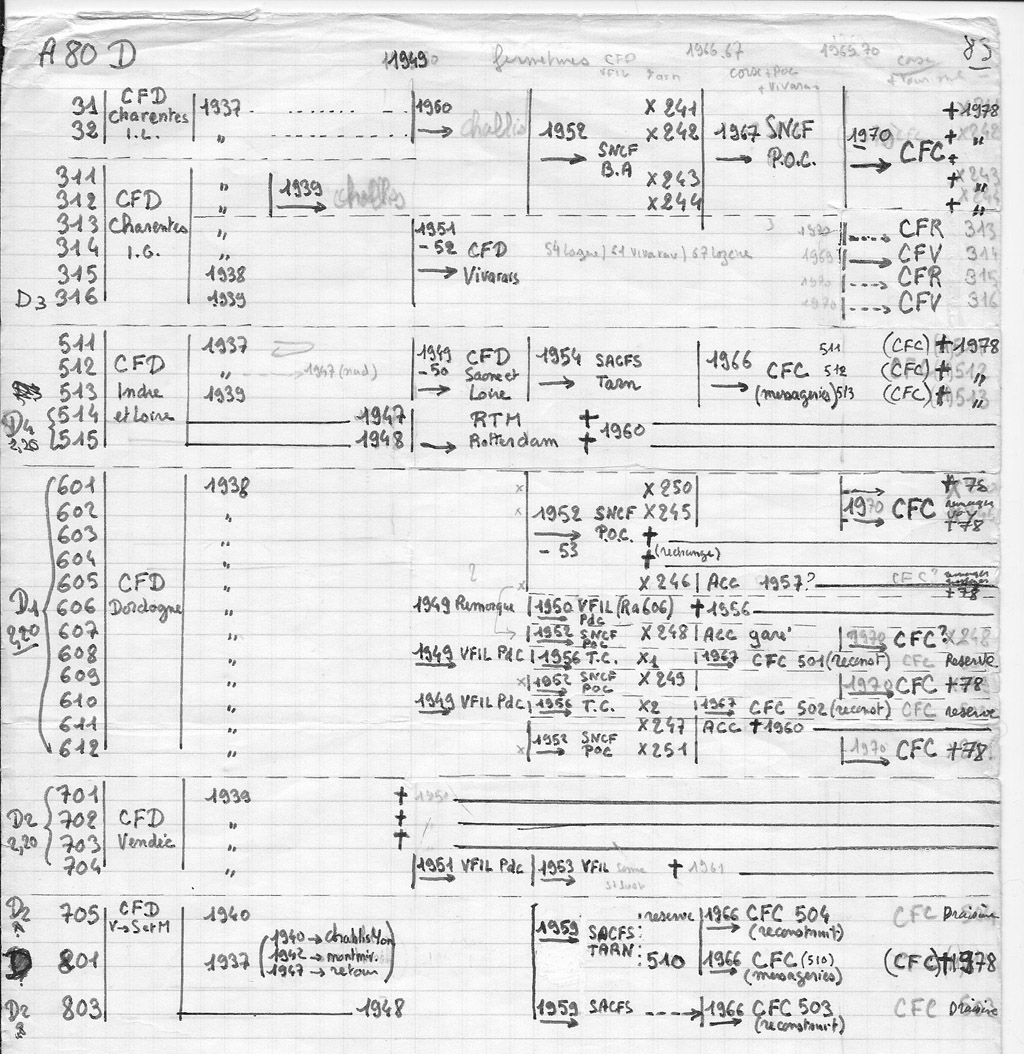 A 80 D 1949 fermetures CFD VFIL Tarn 1966.67 corse + POC + Vivarais 1969.70 corse 83
31 CFD 1937 1950 X 241 + 1978
32 Charentes I.L. " → chablis 1952 → SNCF B.A X 242 1967 → SNCF P.O.C. 1970 → CFC + "
311 " 1939 X 243 + "
312 CFD " → chablis X 244 + "
313 Charentes " 1951 CFR 313
314 I.G. " - 52 CFD → Vivarais 1969 → CFV 314
315 1938 1970 CFR 315
D3 316 1939 1970 CFV 316
511 1937 1949 CFD 1954 SACFS 1966 511 (CFC) + 1978
512 CFD " 1947 - 50 Saone et → Tarn → CFC 512 (CFC) + "
513 Indre 1939 → Loire (messageries) 513 (CFC) + "
D4 2,20 514 et Loire 1947 RTM + 1960
515 1948 → Rotterdam +
601 1938 x X 250 + 78
602 " x 1952 SNCF X 245 1970 → CFC + 78
603 " → P.O.C. +
604 " - 53 + (rechange)
605 CFD " x X 246 ACC 1957? CFC? + 78
D1 2,20 606 Dordogne " 1949 Remorque 1950 VFIL (Ra606) Pdc + 1956
607 " 1952 SNCF POC X 248 ACC garé 1970 CFC? X 248
608 " 1949 VFIL PdC 1956 T.C. X1 1967 CFC 501 (reconst) CFC Reserve
609 " x 1952 SNCF POC X 249 1970 CFC + 78
610 " 1949 VFIL PdC 1956 T.C. X2 1967 CFC 502 (reconst) CFC reserve
611 " X 247 ACC + 1960
612 " x 1952 SNCF POC X 251 1970 CFC + 78
701 1939 + 1950
D2 2,20 702 CFD " +
703 Vendée " +
704 " 1951 VFIL PdC 1953 VFIL + 1961
D2 705 CFD V→SetM 1940 1959 SACFS TARN : reserve 1966 CFC 504 (reconstruit) CFC Draisine
801 1937 (1940 → chablis Yon 1942 → montmir. 1947 → retour : 510 1966 CFC (510) (messageries) (CFC) + 1978
D2 803 1948 1959 SACFS 1966 CFC 503 (reconstruit) CFC Draisine